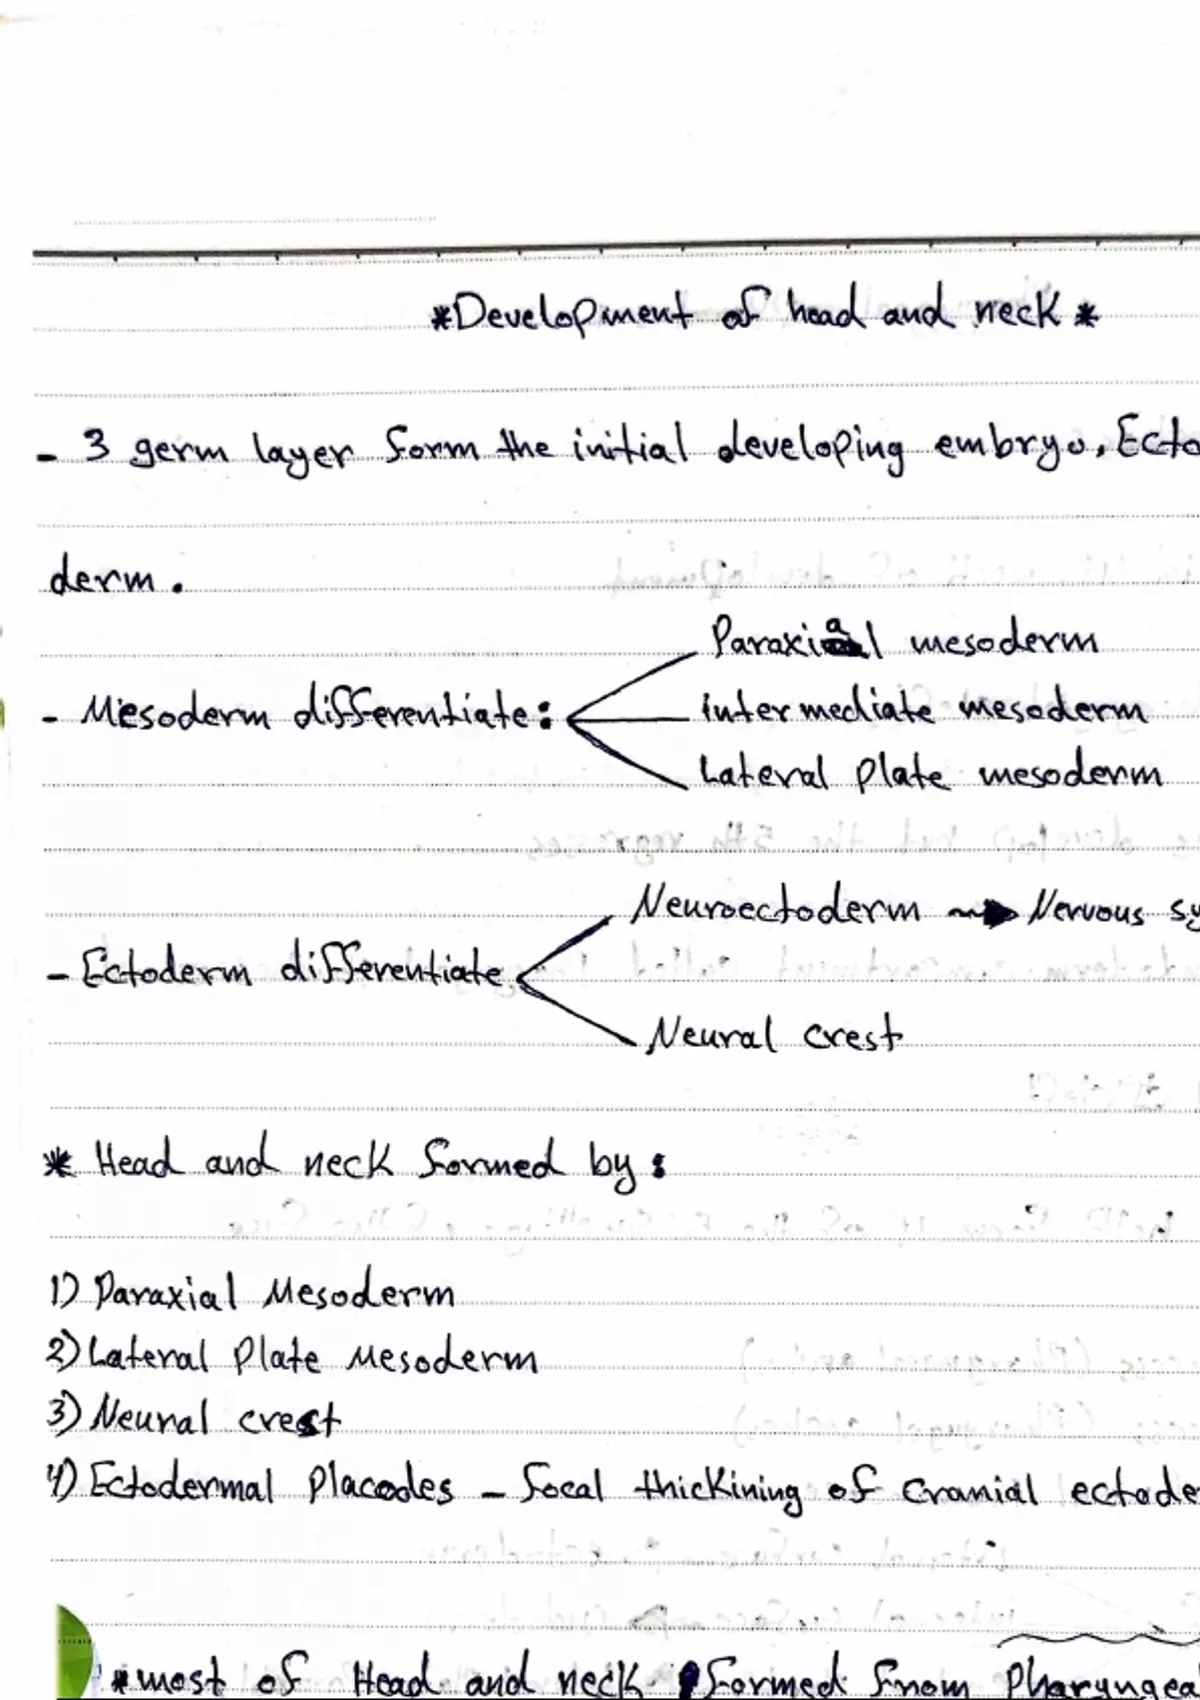 *Development of head and neck *
- 3 germ layer form the initial developing embryo, Ecto
derm.
Paraxial mesoderm
- Mesoderm differentiate:
intermediate mesoderm
Lateral plate mesoderm
Neuroectoderm → Nervous sy
- Ectoderm differentiate
Neural crest
* Head and neck formed by:
1) Paraxial Mesoderm
2) Lateral Plate Mesoderm
3) Neural crest
4) Ectodermal Placodes - focal thickining of cranial ectode
* most of Head and neck formed from Pharyngea